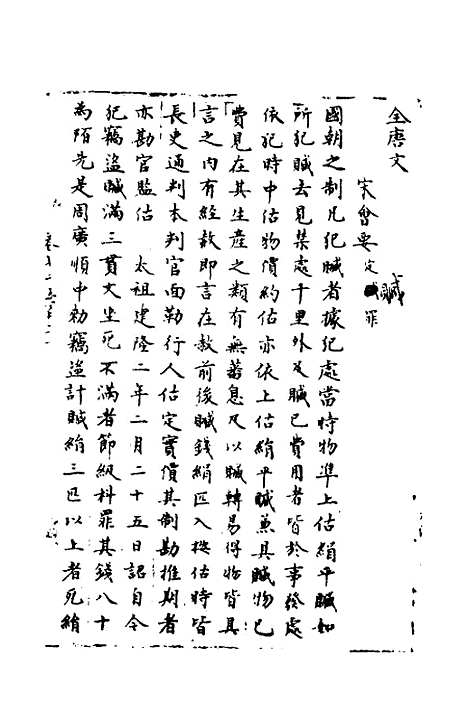 全唐文
贓
宋會要 定贓罪
國朝之制凡犯贓者據犯處當時物準上估絹平贓如
所犯贓去見禁處千里外及贓已費用者皆於事發處
依犯時中估物價約估亦依上估絹平贓兼具贓物已
費見在其生產之類有無蕃息及以贓轉易得物皆具
言之內有經赦即言在赦前後贓錢絹匹入提估時皆
長吏通判本判官面勒行人估定實價其制勘推期者
亦勘官監估 太祖建隆二年二月二十五日詔自今
犯竊盜贓滿三貫文坐死不滿者節級科罪其錢八十
為陌先是周廣順中勅竊盜計贓絹三匹以上者死絹